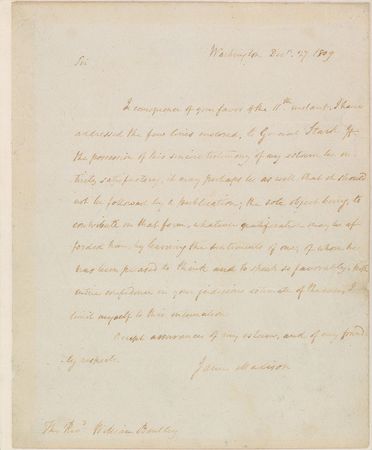 Washington Decr. 27 1809
Sir
In consequence of your favor of the 11th instant, I have
addressed the few lines enclosed, to General Stark. If
the possession of this sincere testimony of my esteem be en-
tirely satisfactory, it may perhaps be as well that it should
not be followed by a publication; the sole object being to
contribute in that form, whatever gratification may be af-
forded him, by knowing the sentiments of one, of whom he
has been pleased to think and to speak so favorably. With
entire confidence in your judicious estimate of the case, I
limit myself to this intimation
Accept assurances of my esteem, and of my friend
ly respects.
James Madison
The Revd. William Bentley